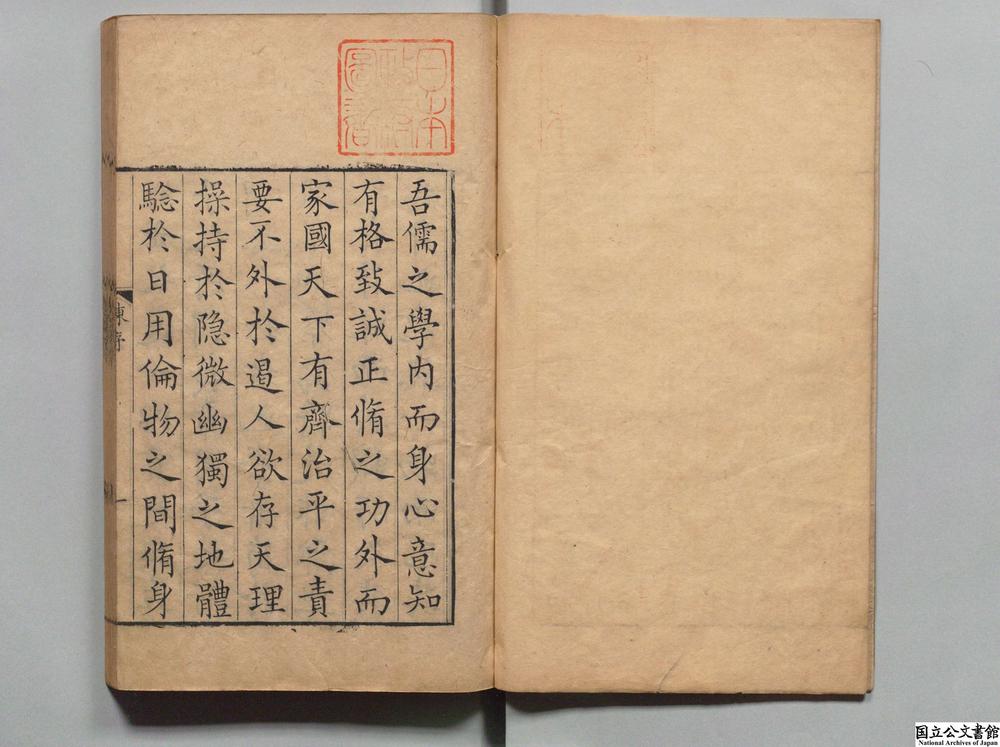 吾儒之學內而身心意知
有格致誠正脩之功外而
家國天下有齊治平之責
要不外於遏人欲存天理
操持於隐微幽獨之地體
驗於日用倫物之間脩身
陳序
一
日本
政府
圖書
国立公文書館
National Archives of Japan